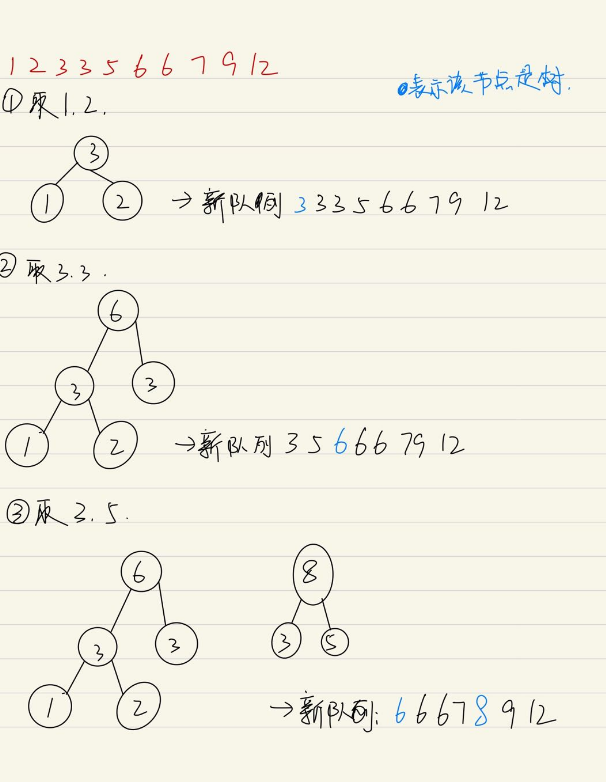 1 2 3 3 5 6 6 7 9 12
表示该节点是树.
①取1.2.
3
1 2 →新队列 3 3 3 5 6 6 7 9 12
②取3.3.
6
3 3
1 2 →新队列 3 5 6 6 6 7 9 12
③取3.5.
6 8
3 3 3 5
1 2 →新队列: 6 6 6 7 8 9 12